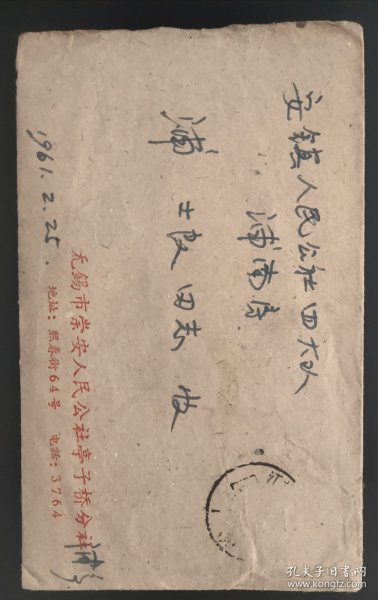 安镇人民公社四大队
浦南房
浦士良同志收
无锡市崇安人民公社亭子桥分社
浦
地址:熙春街64号 电话:3764
1961.2.25.
孔夫子旧书网
www.kongfz.com